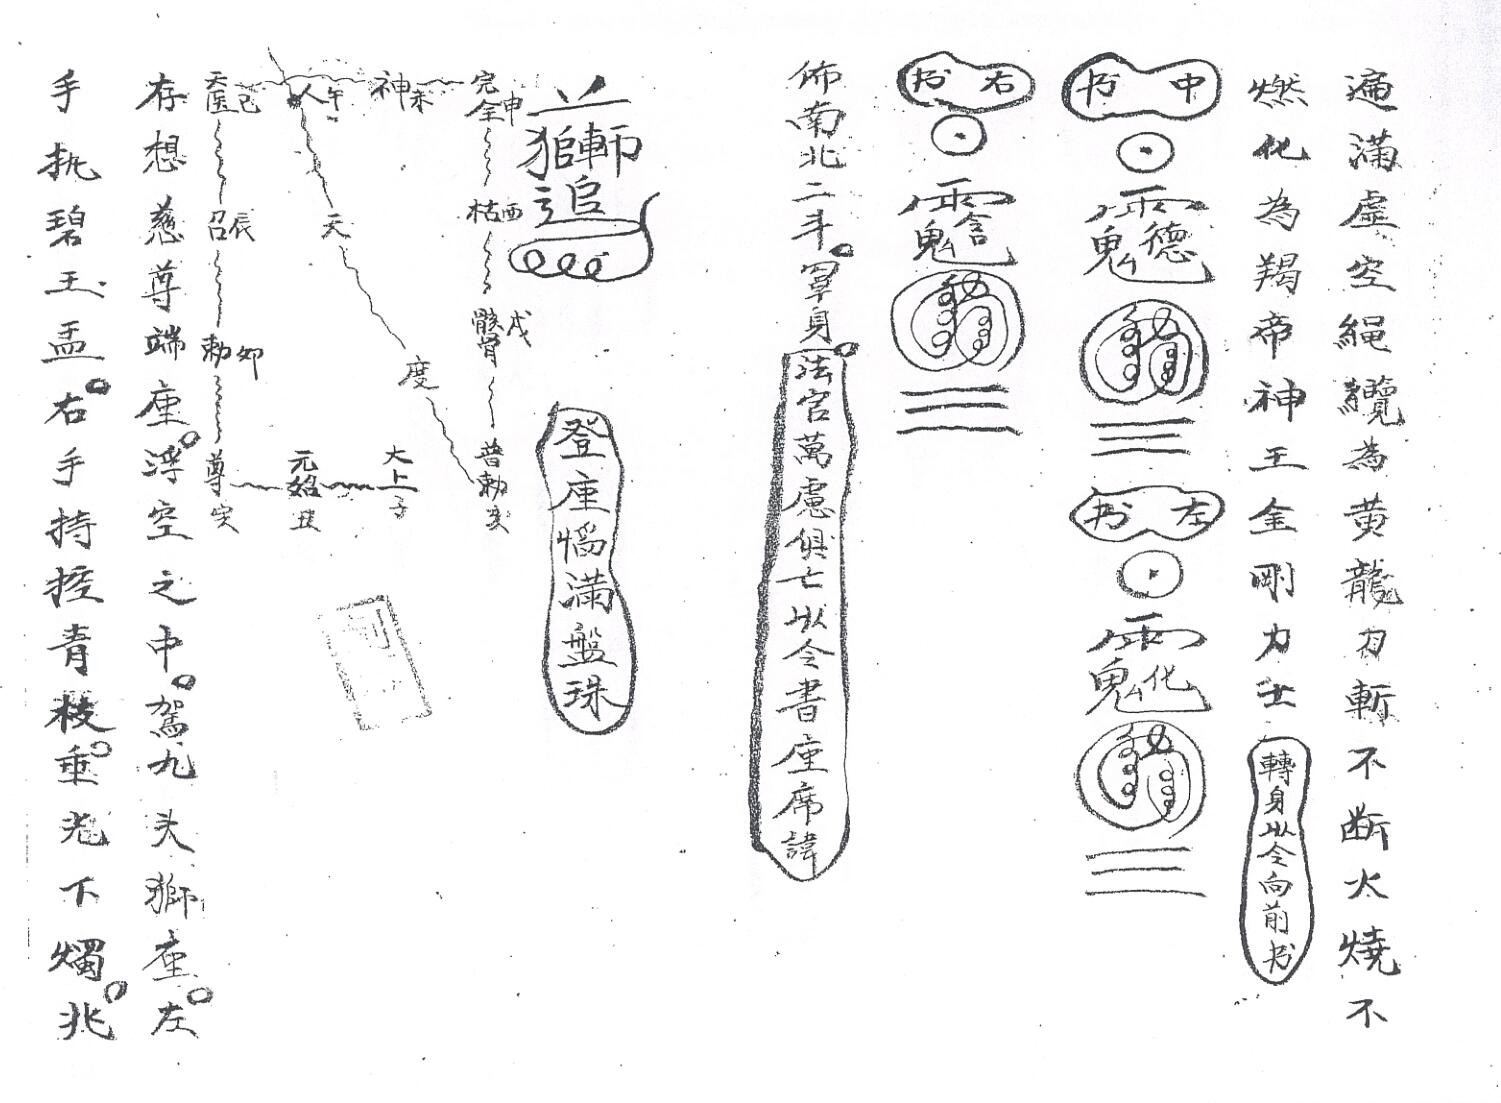 遍滿虛空繩纜為黃龍刀斬不断火燒不
燃化為羯帝神王金剛力士
轉身以令向前书
中书
左书
右书
佈南北二斗罩身
法官萬慮俱亡以令書座席諱
登座惱满盤珠
完全申
神未
人午
天医巳
枯酉
召辰
天
骸骨戌
勅卯
度
普勅亥
太上子
元始丑
尊寅
存想慈尊端座浮空之中駕九头獅座左
手执碧玉盂右手持控青枝垂光下燭兆